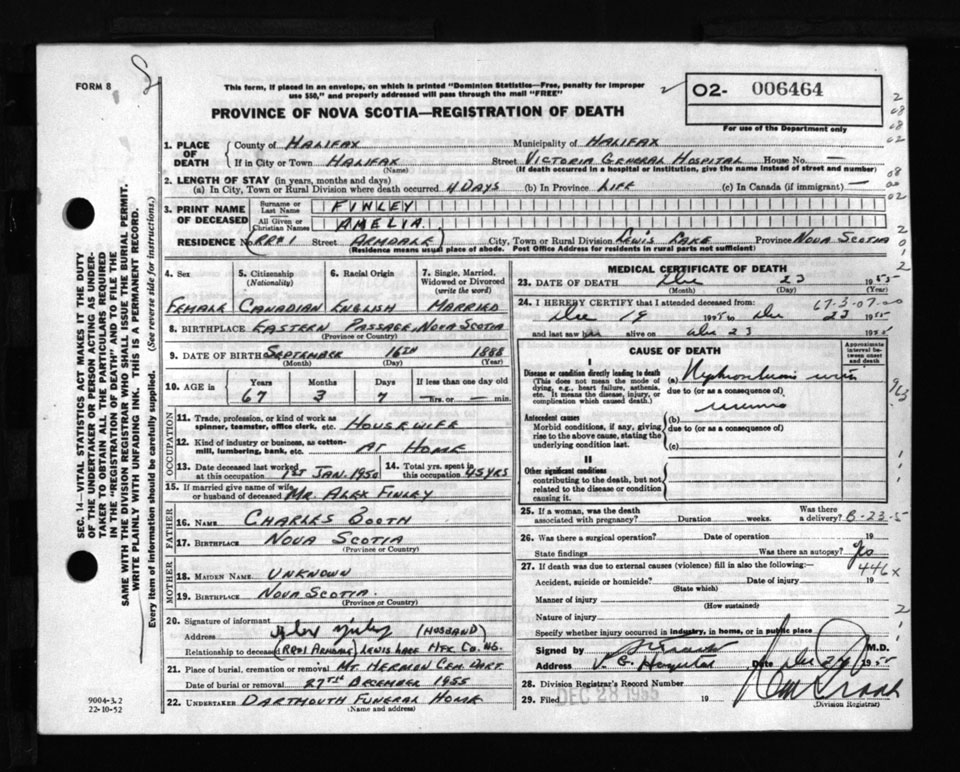 FORM 8
This form, if placed in an envelope, on which is printed "Dominion Statistics—Free, penalty for improper
use $50," and properly addressed will pass through the mail "FREE"
PROVINCE OF NOVA SCOTIA—REGISTRATION OF DEATH
O2- 006464
For use of the Department only
1. PLACE OF DEATH County of HALIFAX Municipality of HALIFAX
If in City or Town HALIFAX Street VICTORIA GENERAL HOSPITAL House No. —
(Name) (If death occurred in a hospital or institution, give the name instead of street and number)
2. LENGTH OF STAY (in years, months and days)
(a) In City, Town or Rural Division where death occurred 4 DAYS (b) In Province LIFE (c) In Canada (if immigrant) —
3. PRINT NAME OF DECEASED Surname or Last Name FINLEY
All Given or Christian Names AMELIA
RESIDENCE No. RR#1 Street ARMDALE City, Town or Rural Division LEWIS LAKE Province NOVA SCOTIA
(Residence means usual place of abode. Post Office Address for residents in rural parts not sufficient)
4. Sex 5. Citizenship (Nationality) 6. Racial Origin 7. Single, Married, Widowed or Divorced (write the word)
FEMALE CANADIAN ENGLISH MARRIED
8. BIRTHPLACE EASTERN PASSAGE, NOVA SCOTIA
(Province or Country)
9. DATE OF BIRTH SEPTEMBER 16TH 1888
(Month) (Day) (Year)
10. AGE in Years Months Days If less than one day old
67 3 7 —hrs. or — min.
OCCUPATION
11. Trade, profession, or kind of work as spinner, teamster, office clerk, etc. HOUSEWIFE
12. Kind of industry or business, as cotton-mill, lumbering, bank, etc. AT HOME
13. Date deceased last worked at this occupation 1ST JAN. 1950 14. Total yrs. spent in this occupation 45 YRS
15. If married give name of wife or husband of deceased MR. ALEX FINLEY
FATHER
16. NAME CHARLES BOOTH
17. BIRTHPLACE NOVA SCOTIA
(Province or Country)
MOTHER
18. MAIDEN NAME UNKNOWN
19. BIRTHPLACE NOVA SCOTIA.
(Province or Country)
20. Signature of informant Alex Finley (HUSBAND)
Address
Relationship to deceased (RR#1 ARMDALE) LEWIS LAKE HFX. CO. NS.
21. Place of burial, cremation or removal MT. HERMON CEM. DART.
Date of burial or removal 27TH DECEMBER 1955
22. UNDERTAKER DARTMOUTH FUNERAL HOME
(Name and address)
MEDICAL CERTIFICATE OF DEATH
23. DATE OF DEATH Dec 23 1955
(Month) (Day) (Year)
67-3-07-00
24. I HEREBY CERTIFY that I attended deceased from:
Dec 19 1955 to Dec 23 1955
and last saw her alive on Dec 23 1955
CAUSE OF DEATH
Approximate interval between onset and death
I
Disease or condition directly leading to death
(This does not mean the mode of dying, e.g., heart failure, asthenia, etc. It means the disease, injury, or complication which caused death.)
(a) Nephrosclerosis with
due to (or as a consequence of)
uremia
Antecedent causes
Morbid conditions, if any, giving rise to the above cause, stating the underlying condition last.
(b)
due to (or as a consequence of)
(c)
II
Other significant conditions
contributing to the death, but not related to the disease or condition causing it.
25. If a woman, was the death associated with pregnancy? Duration weeks. Was there a delivery? B-23-5
26. Was there a surgical operation? Date of operation 19
State findings Was there an autopsy? Yes
27. If death was due to external causes (violence) fill in also the following:— 446x
Accident, suicide or homicide? Date of injury 19
(State which)
Manner of injury
(How sustained)
Nature of injury
Specify whether injury occurred in industry, in home, or in public place
Signed by M.D.
Address V. G. Hospital Date Dec 1955
28. Division Registrar's Record Number
29. Filed DEC 28 1955 19
(Division Registrar)
9004-3.2
22-10-52
SEC. 14—VITAL STATISTICS ACT MAKES IT THE DUTY
OF THE UNDERTAKER OR PERSON ACTING AS UNDER-
TAKER TO OBTAIN ALL THE PARTICULARS REQUIRED
IN THE "REGISTRATION OF DEATH" AND TO FILE THE
SAME WITH THE DIVISION REGISTRAR WHO SHALL ISSUE THE BURIAL PERMIT.
WRITE PLAINLY WITH UNFADING INK. THIS IS A PERMANENT RECORD.
Every item of information should be carefully supplied. (See reverse side for instructions.)